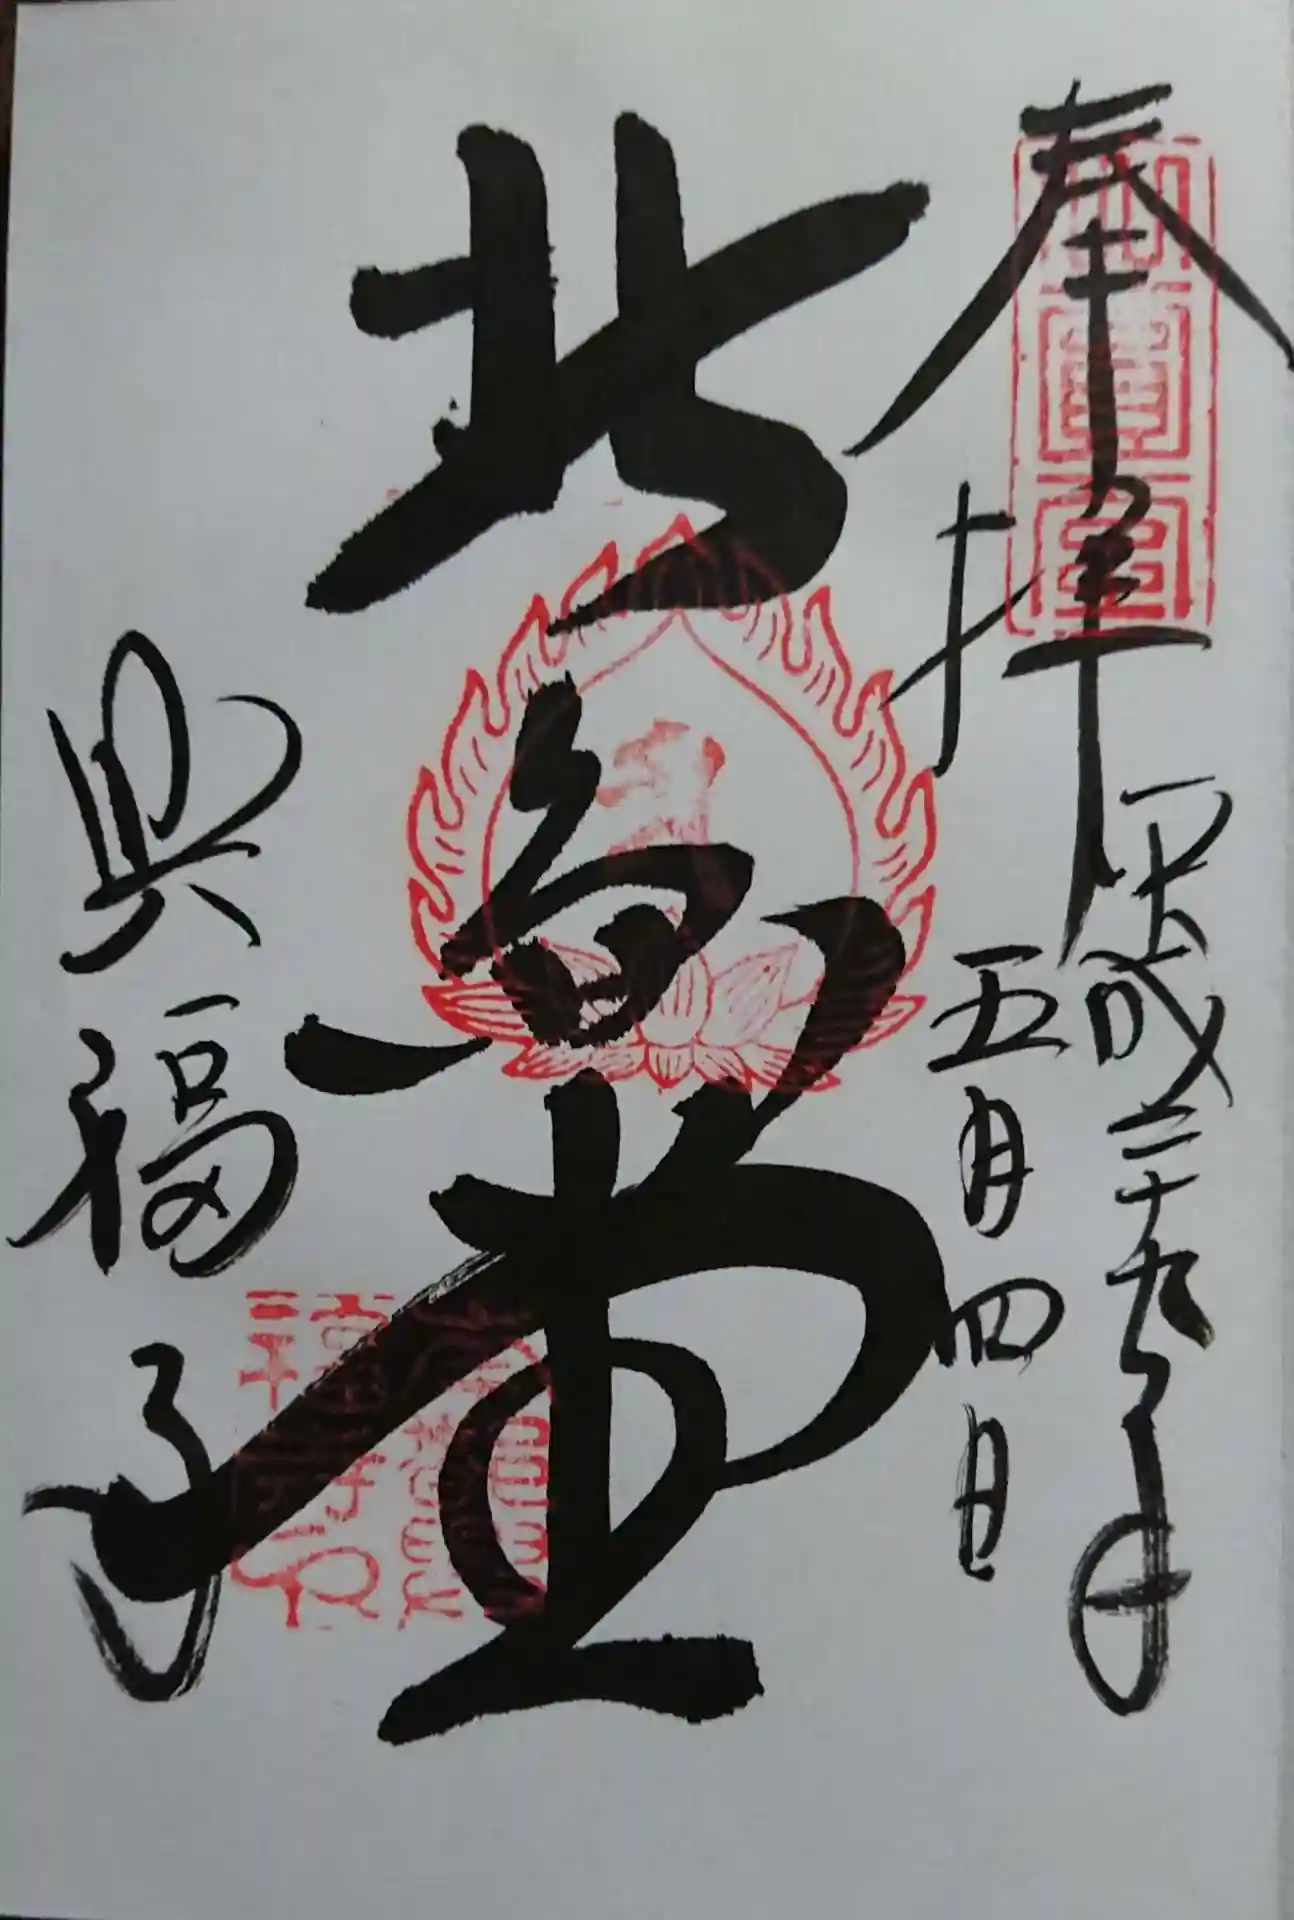 奉拝
平成二十九年
五月四日
北圓堂
興福寺